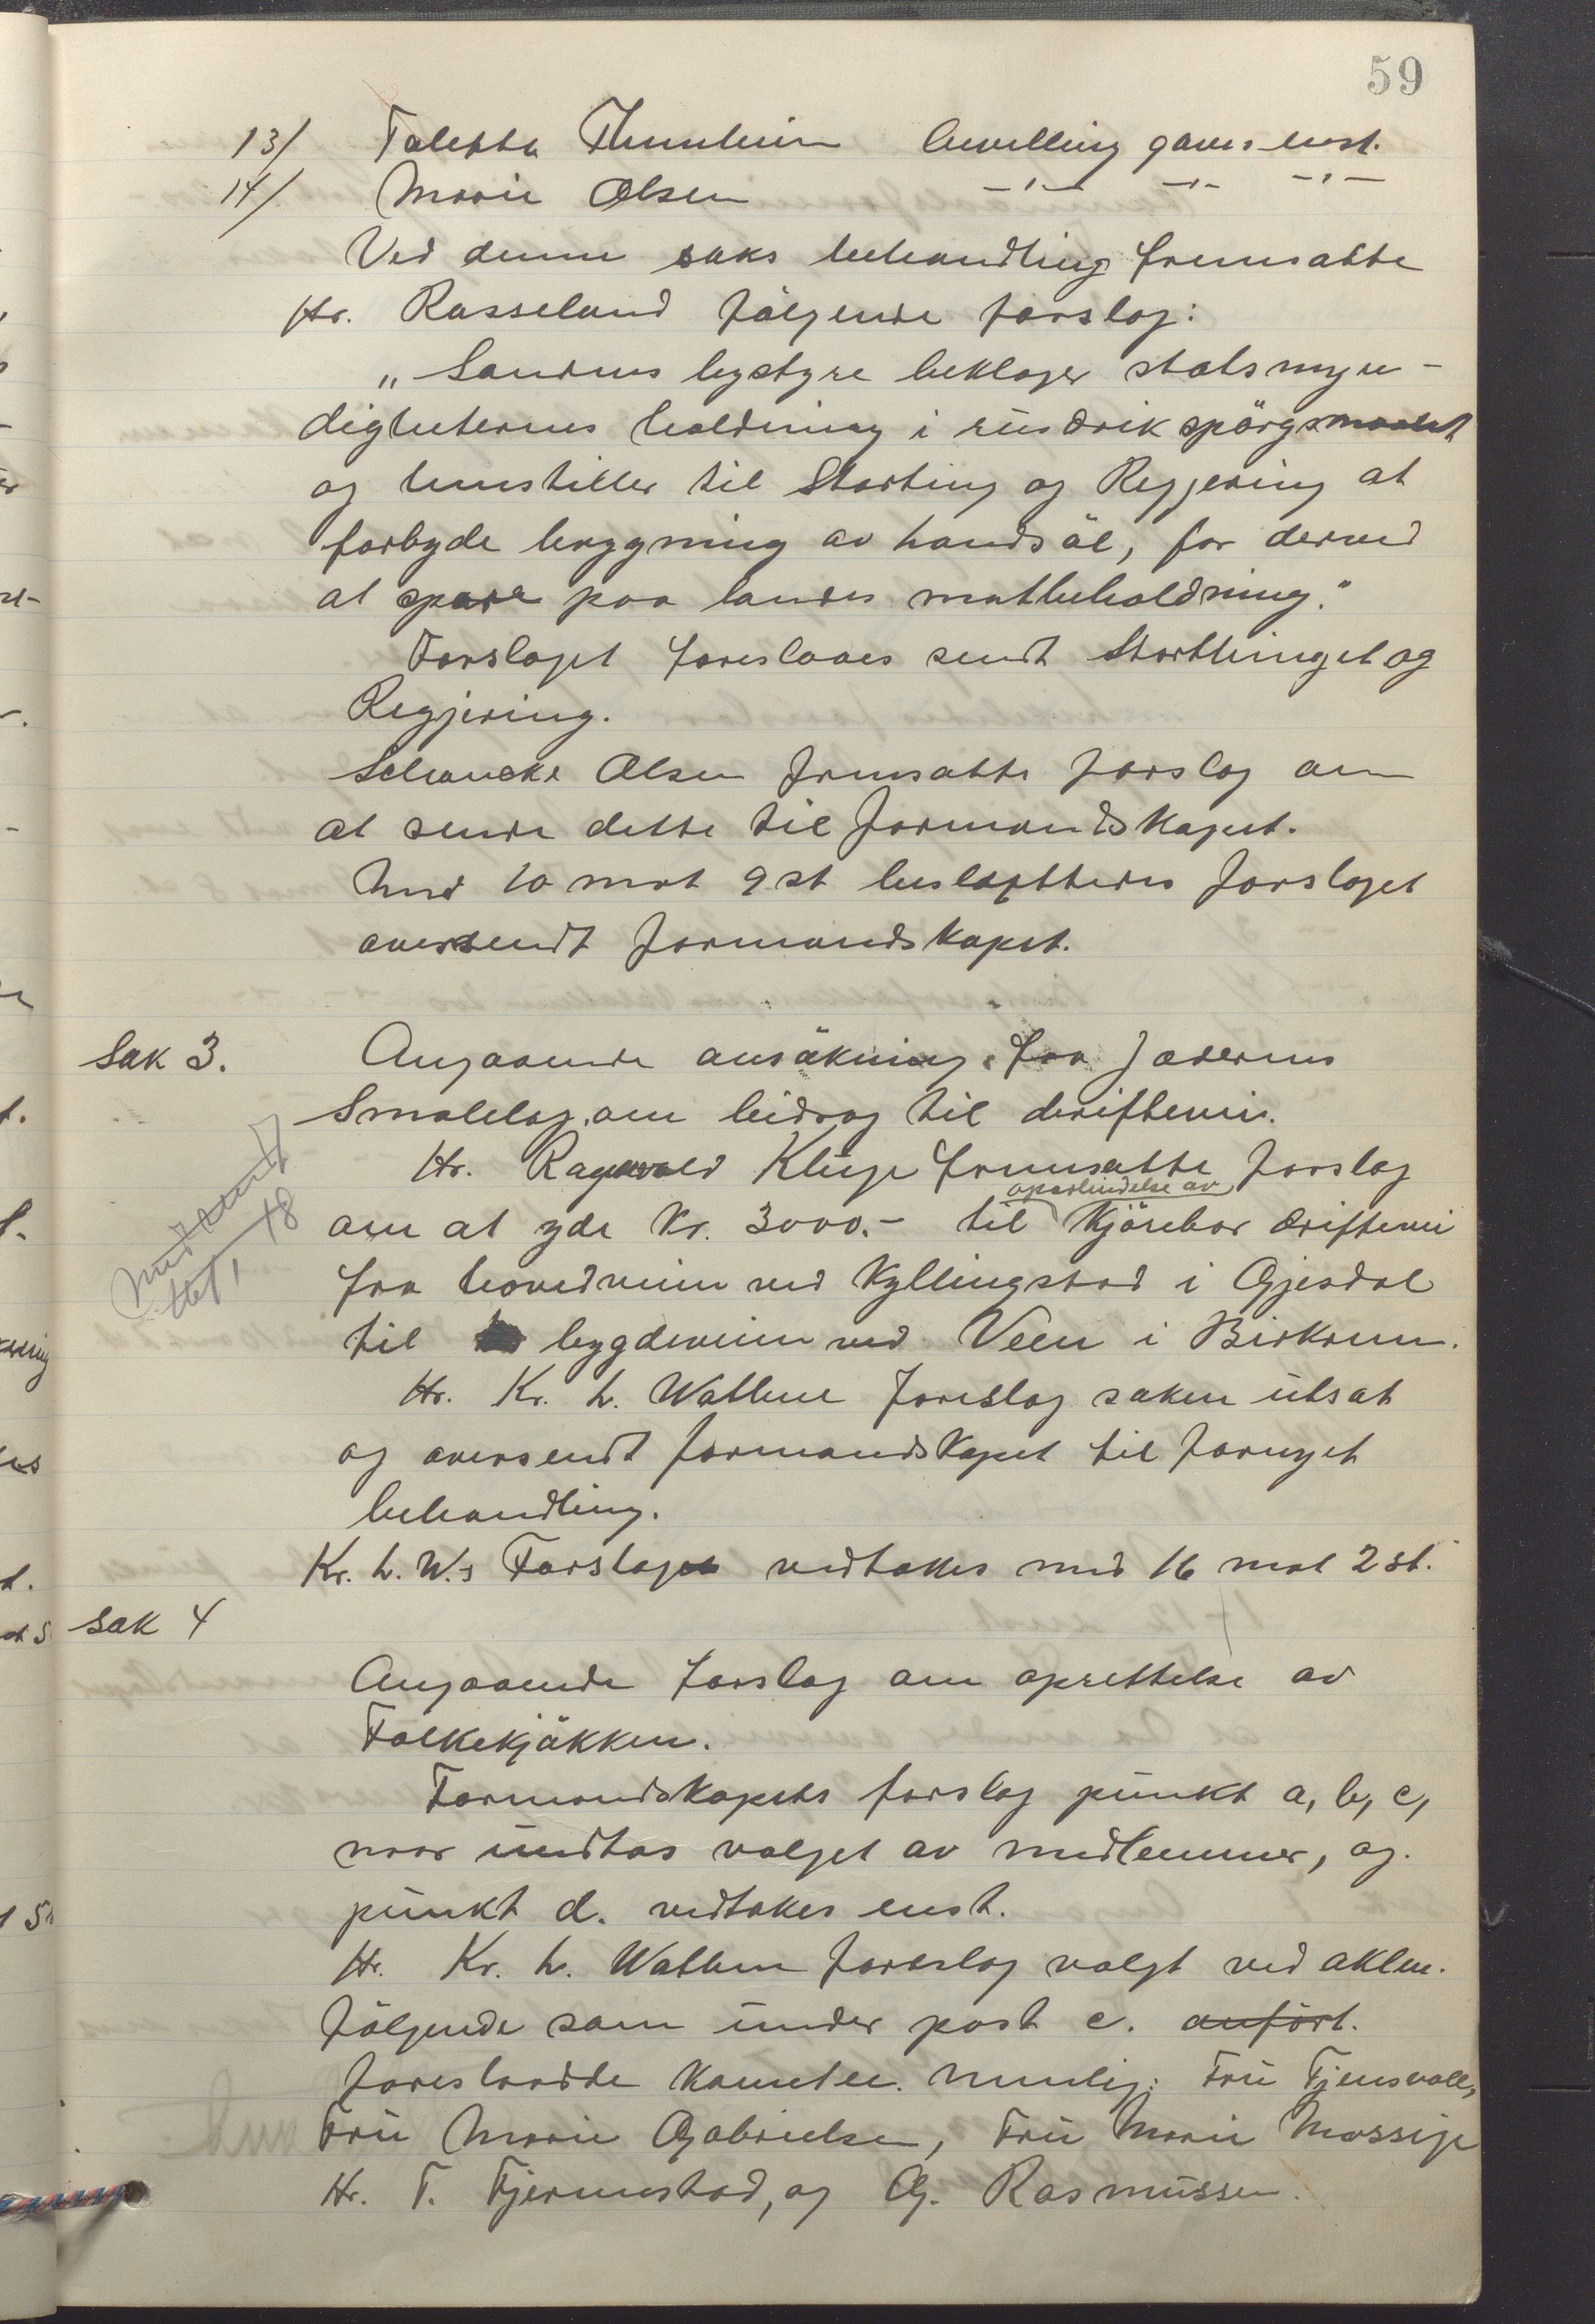 59
13/ Taletta Thunheim bevilling gaves enst.
14/ Marie Olsen -"- -"- -"-
Ved denne saks behandling fremsatte
Hr. Rasseland følgende forslag:
„Sandnes bystyre beklager statsmyn-
digheternes holdning i rusdrikspørgsmaalet
og henstiller til Storting og Regjering at
forbyde brygning av handsøl, for derved
at spare paa landes matbeholdning."
Forslaget foreslaaes sendt Storthinget og
Regjering.
Schancke Olsen fremsatte forslag om
at sende dette til formandskapet.
Med 10 mot 9 st besluttedes forslaget
oversendt formandskapet.
Sak 3. Angaaende ansøkning fra Jæderens
Smalelag om bidrag til driftevei.
Hr. Ragnvald Kluge fremsatte forslag
oparbeidelse av
om at yde Kr. 3000.- til kjørebar driftevei
fra hovedveien ved Kyllingstad i Gjesdal
til bygdeveien ved Veen i Birkrem.
Hr. Kr. L. Wathne foreslog saken utsat
og oversendt formandskapet til fornyet
behandling.
Kr. L. W.s Forslaget vedtakes med 16 mot 2 st.
Sak 4
Angaaende forslag om oprettelse av
Folkekjøkken.
Formandskapets forslag punkt a, b, c,
naar undtas valget av medlemmer, og
punkt d. vedtakes enst.
Hr. Kr. L. Wathne foreslog valgt ved aklm.
følgende som under post c. anført.
foreslaadde komitee. nemlig: Fru Tjensvoll,
Fru Marie Gabrielsen, Fru Marie Massige
Hr. T. Fjermestad, og G. Rasmussen.